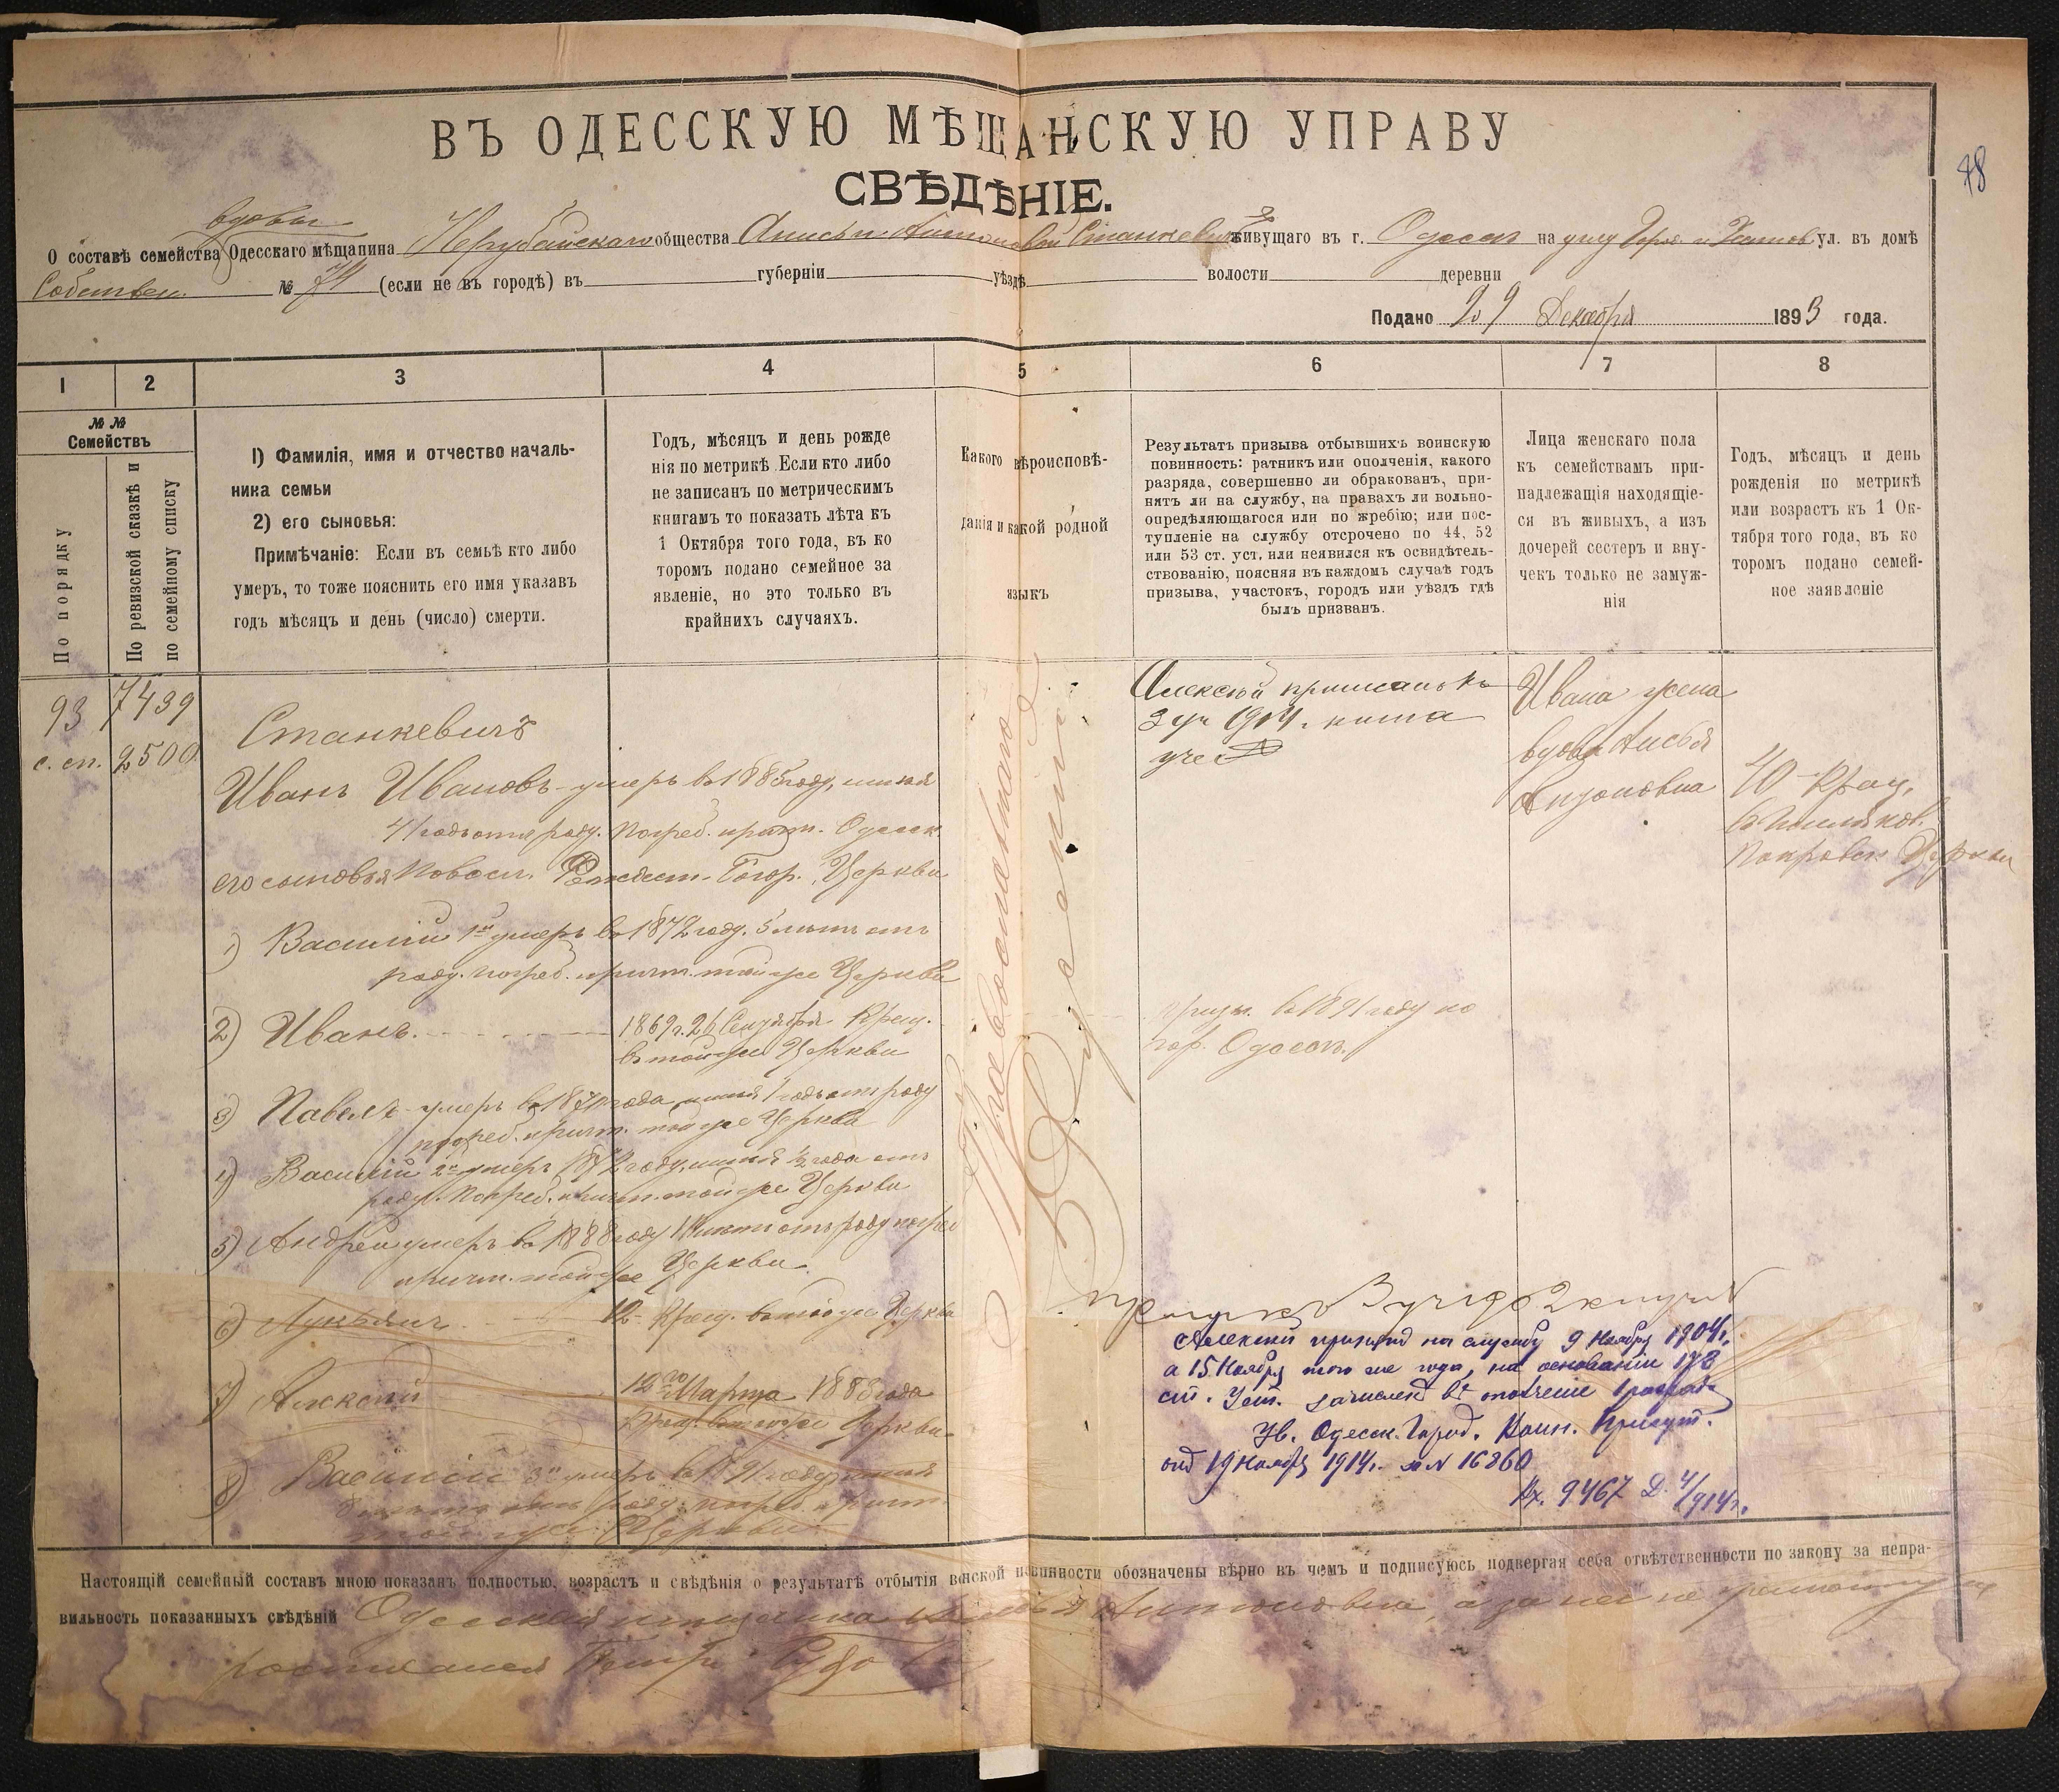 ВЪ ОДЕССКУЮ МѢЩАНСКУЮ УПРАВУ
78
СВѢДѢНІЕ.
вдовы
О составѣ семейства Одесскаго мѣщанина Нерубайскаго общества Анисьи Антоновой Станкевичъ живущаго въ г. Одессѣ на углу ул. въ домѣ
Собствен. № 74 (если не въ городѣ) въ губерніи уѣздѣ волости деревни
Подано 29 Декабря 1893 года.
1 2 3 4 5 6 7 8
№ №
Семействъ
По порядку
По ревизской сказкѣ и
по семейному списку
1) Фамилія, имя и отчество началь-
ника семьи
2) его сыновья:
Примѣчаніе: Если въ семьѣ кто либо
умеръ, то тоже пояснить его имя указавъ
годъ мѣсяцъ и день (число) смерти.
Годъ, мѣсяцъ и день рожде
нія по метрикѣ Если кто либо
не записанъ по метрическимъ
книгамъ то показать лѣта къ
1 Октября того года, въ ко
торомъ подано семейное за
явленіе, но это только въ
крайнихъ случаяхъ.
Какого вѣроисповѣ-
данія и какой родной
языкъ
Результатъ призыва отбывшихъ воинскую
повинность: ратникъ или ополченія, какого
разряда, совершенно ли обракованъ, при-
нятъ ли на службу, на правахъ ли вольно-
опредѣляющагося или по жребію; или пос-
тупленіе на службу отсрочено по 44, 52
или 53 ст. уст. или неявился къ освидѣтель-
ствованію, поясняя въ каждомъ случаѣ годъ
призыва, участокъ, городъ или уѣздъ гдѣ
былъ призванъ.
Лица женскаго пола
къ семействамъ при-
надлежащія находящіе-
ся въ живыхъ, а изъ
дочерей сестеръ и вну-
чекъ только не замуж-
нія
Годъ, мѣсяцъ и день
рожденія по метрикѣ
или возрастъ къ 1 Ок-
тября того года, въ ко
торомъ подано семей-
ное заявленіе
93 7439
с. сп. 2500
Станкевичъ
Иванъ Ивановъ умеръ въ 1885 году, имѣя
41 годъ отъ роду. Погреб. причт. Одесск.
его сыновья Новосл. Рождест. Богор. Церкви
1) Василій 1й умеръ въ 1872 году. 5 лѣтъ отъ
роду. погреб. причт. той же Церкви
2) Иванъ 1869 г. 26 Сентября Крещ.
въ той же Церкви
3) Павелъ умеръ въ года имѣя 1 годъ отъ роду
погреб. причт. той же Церкви
4) Василій 2й умеръ году, имѣя ½ года отъ
роду. Погреб. причт. той же Церкви
5) Андрей умеръ въ 1888 году лѣтъ отъ роду погреб
причт. той же Церкви.
6) Лукьянъ 12 Крещ. въ той же Церкви
7) Алексѣй 12го Марта 1883 года
Крещ. въ той же Церкви
8) Василій 3й умеръ въ 1891 году имѣя
лѣтъ отъ роду. погреб. причт.
той же Церкви
Православнаго
Русскій
Алексѣй приписанъ къ
3 уч 1904 г.
призы. въ 1891 году по
гор. Одессѣ.
Ивана жена
вдова Анисья
Антоновна
40 Крещ.
въ
Покровск. Церкви
Алексѣй принятъ на службу 9 Ноября 1904 г.
а 15 Ноября того же года, на основаніи 178
ст. Уст. зачисленъ въ ополченіе 1 разряда
Ув. Одесск. Город. Воин. Присут.
отъ 19 Ноября 1914 г. за № 16860
Вх. 9467 Д. 4/914 г.
Настоящій семейный составъ мною показанъ полностью, возрастъ и свѣдѣнія о результатѣ отбытія воинской повинности обозначены вѣрно въ чемъ и подписуюсь подвергая себя отвѣтственности по закону за непра-
вильность показанныхъ свѣдѣній Одесская мѣщанка Антоновна, а за нее неграмотную
росписался Петръ